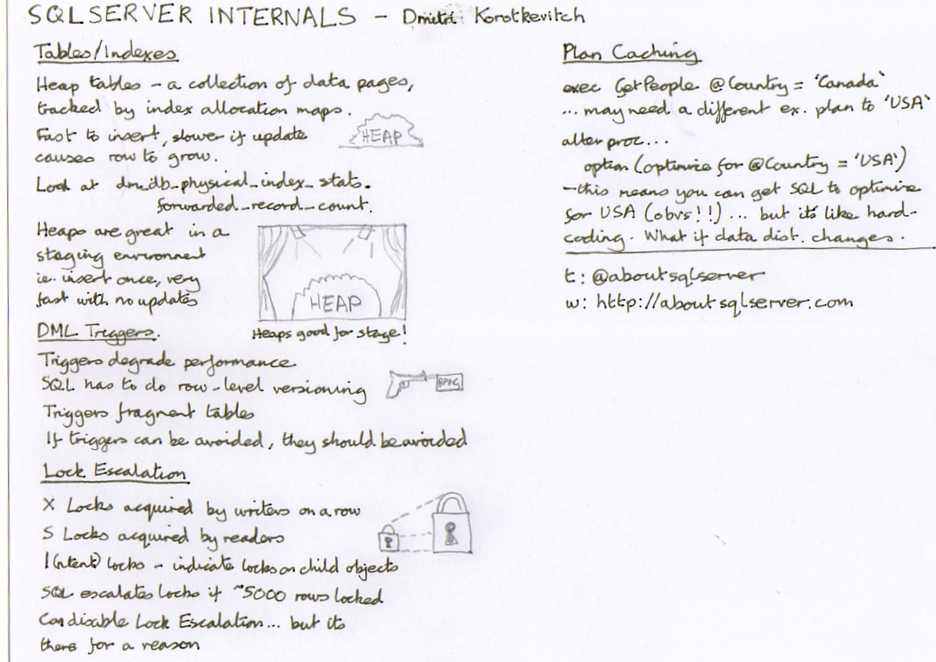 SQL SERVER INTERNALS - Dmitri Korotkevitch
Tables/Indexes
Heap tables - a collection of data pages,
tracked by index allocation maps.
Fast to insert, slower if update
causes row to grow.
HEAP
Look at dm_db_physical_index_stats.
forwarded_record_count.
Heaps are great in a
staging environment
ie. insert once, very
fast with no updates
HEAP
Heaps good for stage!
DML Triggers.
Triggers degrade performance
SQL has to do row-level versioning
BANG
Triggers fragment tables
If triggers can be avoided, they should be avoided
Lock Escalation
X Locks acquired by writers on a row
S Locks acquired by readers
I(ntent) locks - indicate locks on child objects
SQL escalates locks if ~5000 rows locked
Can disable Lock Escalation... but its
there for a reason
Plan Caching
exec GetPeople @Country = 'Canada'
... may need a different ex. plan to 'USA'
alter proc...
option (optimize for @Country = 'USA')
- this means you can get SQL to optimize
for USA (obvs!!) ... but its like hard-
coding. What if data dist. changes.
t: @aboutsqlserver
w: http://aboutsqlserver.com